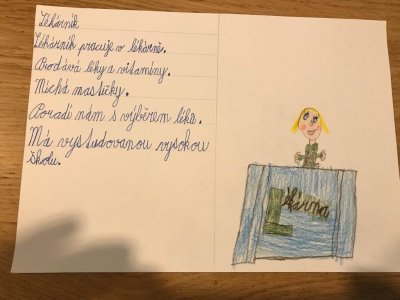 Lékárník
Lékárník pracuje v lékárně.
Prodává léky a vitamíny.
Míchá mastičky.
Poradí nám s výběrem léků.
Má vystudovanou vysokou
školu.
Lékárna